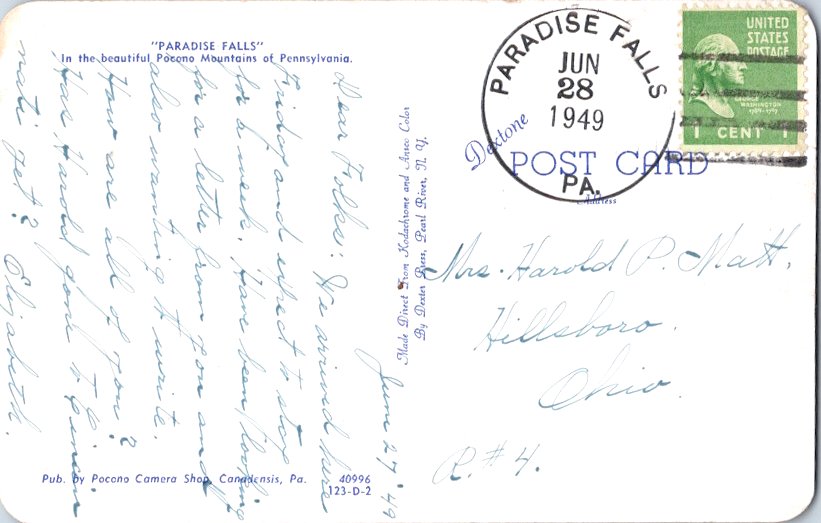 "PARADISE FALLS"
In the beautiful Pocono Mountains of Pennsylvania.
June 27 '49
Dear Folks: We arrived here
Friday and expect to stay
for a week. Have been looking
for a letter from you and
also wanting to write.
How are all of you?
Has Harold gone to Cincin
nati yet? Elizabeth.
Pub. by Pocono Camera Shop, Canadensis, Pa.
40996
123-D-2
Made Direct From Kodachrome and Ansco Color
By Dexter Press, Pearl River, N. Y.
PARADISE FALLS
JUN
28
1949
PA.
UNITED
STATES
POSTAGE
GEORGE
WASHINGTON
1789-1797
1 CENT 1
Dextone
POST CARD
Address
Mrs. Harold P. Matt.
Hillsboro.
Ohio.
R.# 4.